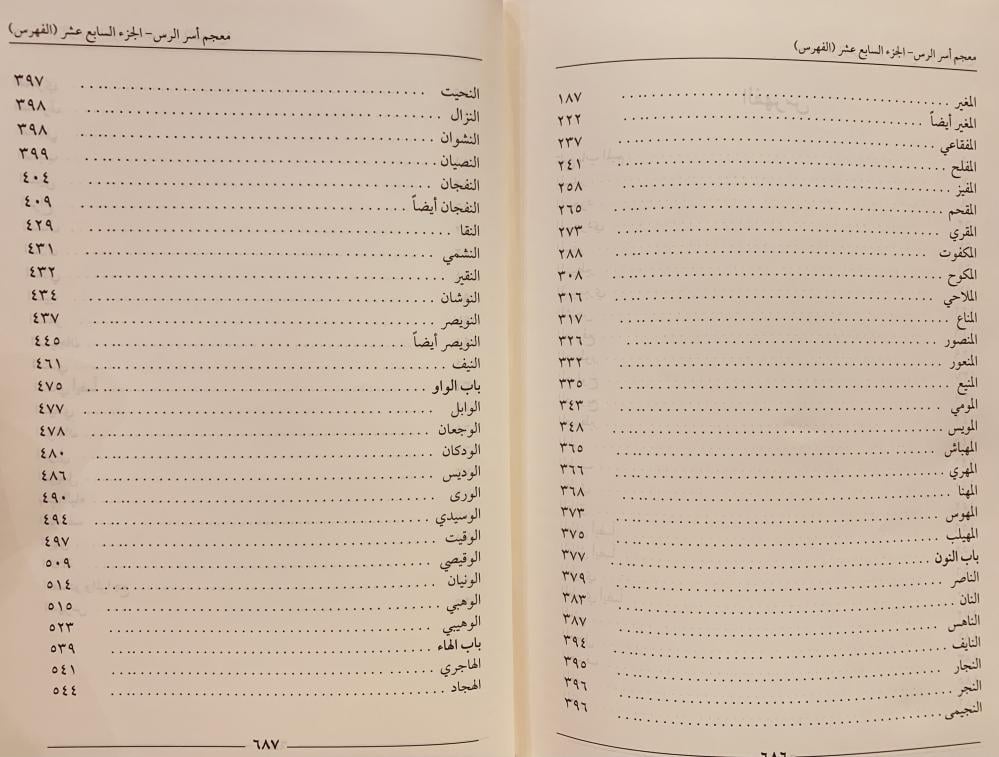 معجم أسر الرس - الجزء السابع عشر (الفهرس)
المغير ١٨٧
المغير أيضاً ٢٢٢
المفقاعي ٢٣٧
المفلح ٢٤١
المفيز ٢٥٨
المقحم ٢٦٥
المقري ٢٧٣
المكفوت ٢٨٨
المكوح ٣٠٨
الملاحي ٣١٦
المناع ٣١٧
المنصور ٣٢٦
المنعور ٣٣٢
المنيع ٣٣٥
المومي ٣٤٣
المويس ٣٤٨
المهباش ٣٦٥
المهري ٣٦٦
المهنا ٣٦٨
المهوس ٣٧٣
المهيلب ٣٧٥
باب النون ٣٧٧
الناصر ٣٧٩
النان ٣٨٣
الناهس ٣٨٧
النايف ٣٩٤
النجار ٣٩٥
النجر ٣٩٦
النجيمي ٣٩٦
٦٨٦
معجم أسر الرس - الجزء السابع عشر (الفهرس)
النحيت ٣٩٧
النزال ٣٩٨
النشوان ٣٩٨
النصيان ٣٩٩
النفجان ٤٠٤
النفجان أيضاً ٤٠٩
النقا ٤٢٩
النشمي ٤٣١
النقير ٤٣٢
النوشان ٤٣٤
النويصر ٤٣٧
النويصر أيضاً ٤٤٥
النيف ٤٦١
باب الواو ٤٧٥
الوابل ٤٧٧
الوجعان ٤٧٨
الودكان ٤٨٠
الوديس ٤٨٦
الورى ٤٩٠
الوسيدي ٤٩٤
الوقيت ٤٩٧
الوقيصي ٥٠٩
الونيان ٥١٤
الوهبي ٥١٥
الوهيبي ٥٢٣
باب الهاء ٥٣٩
الهاجري ٥٤١
الهجاد ٥٤٤
٦٨٧